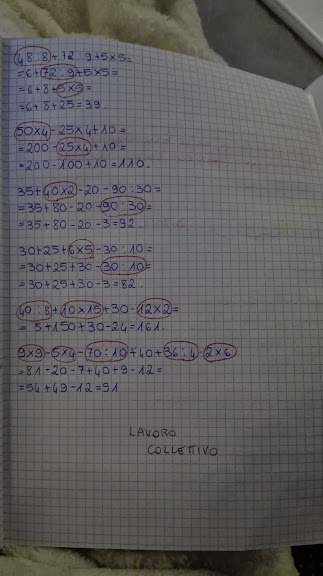 48:8+72:9+5×5=
=6+72:9+5×5=
=6+8+5×5=
=6+8+25=39
50×4-25×4+10=
=200-25×4+10=
=200-100+10=110.
35+40×2-20-90:30=
=35+80-20-90:30=
=35+80-20-3=92.
30+25+6×5-30:10=
=30+25+30-30:10=
=30+25+30-3=82.
40:8+10×15+30-12×2=
= 5+150+30-24=161.
9×9-5×4-70:10+40+36:4-2×6
=81-20-7+40+9-12=
=54+49-12=91
LAVORO
COLLETIVO